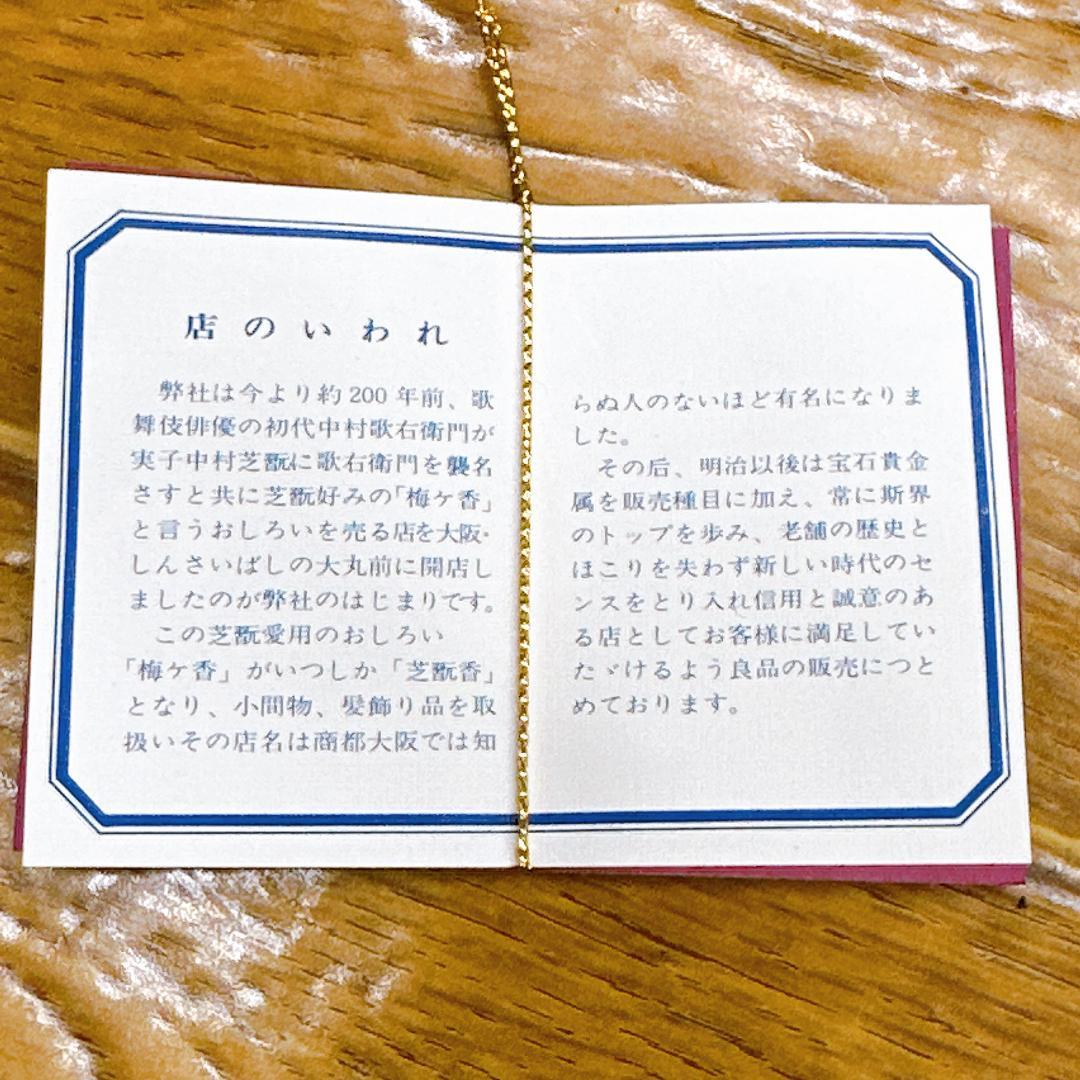 店のいわれ
弊社は今より約200年前、歌
舞伎俳優の初代中村歌右衛門が
実子中村芝翫に歌右衛門を襲名
さすと共に芝翫好みの「梅ケ香」
と言うおしろいを売る店を大阪・
しんさいばしの大丸前に開店し
ましたのが弊社のはじまりです。
この芝翫愛用のおしろい
「梅ケ香」がいつしか「芝翫香」
となり、小間物、髪飾り品を取
扱いその店名は商都大阪では知
らぬ人のないほど有名になりま
した。
その后、明治以後は宝石貴金
属を販売種目に加え、常に斯界
のトップを歩み、老舗の歴史と
ほこりを失わず新しい時代のセ
ンスをとり入れ信用と誠意のあ
る店としてお客様に満足してい
たゞけるよう良品の販売につと
めております。